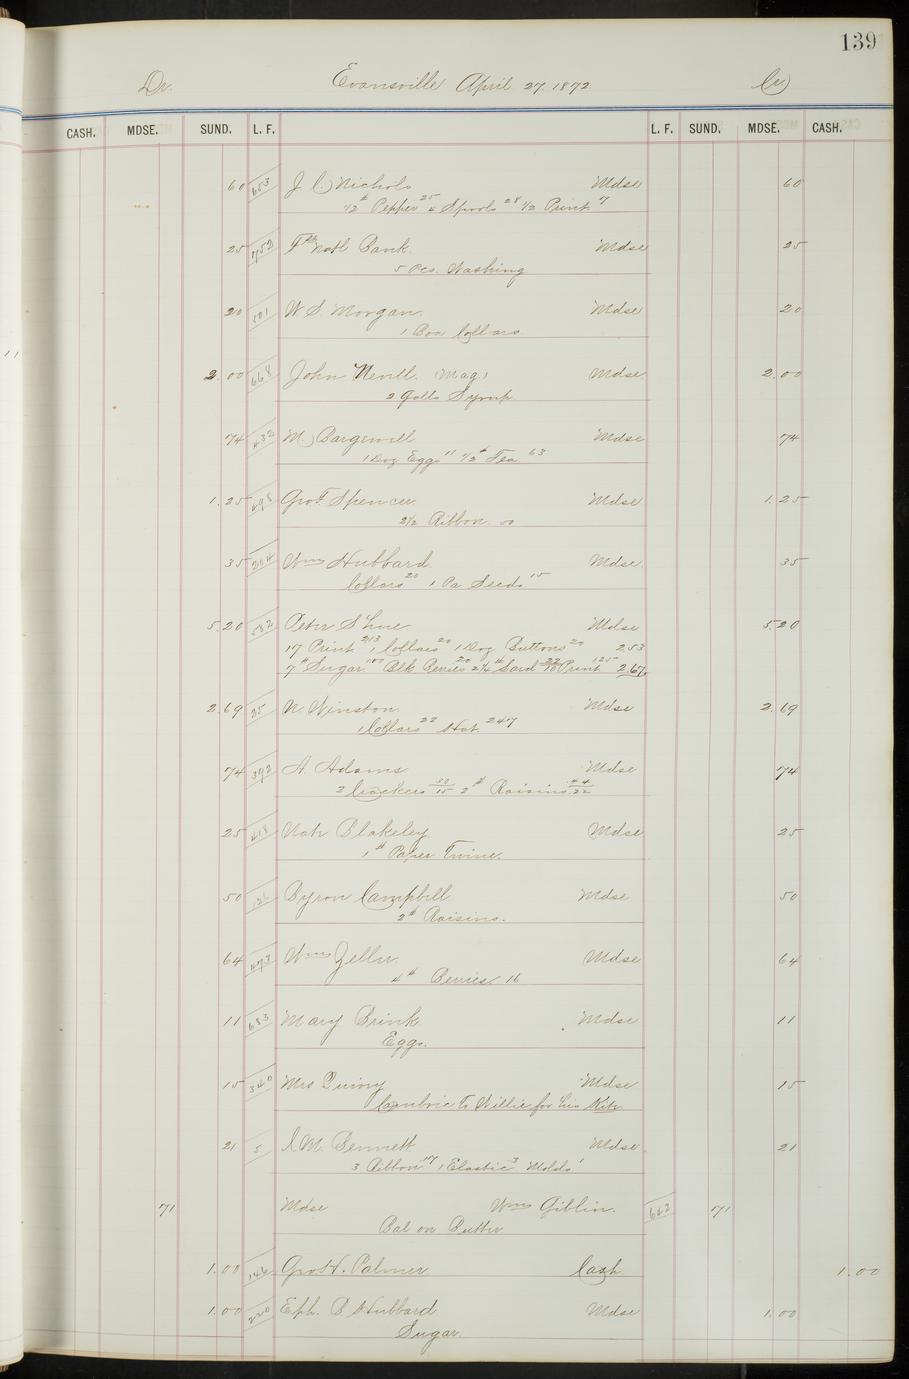 139
Dr. Evansville April 27. 1872 Cr
CASH. MDSE. SUND. L. F. L. F. SUND. MDSE. CASH.
60 653 J C Nichols Mdse 60
1/2 # Pepper 25 4 Spools 28 1/2 Print 7
25 752 Fst Natl Bank Mdse 25
5 Pcs. Washing
20 501 W S Morgan. Mdse 20
1 Box Collars
2.00 668 John Nevill. (Mag) Mdse 2.00
2 Galls Syrup
74 432 M Bargewell Mdse 74
1 Doz Eggs 11 1/2 # Tea 63
1.25 498 Geo F. Spencer Mdse 1.25
2 1/2 Ribbon. 50
35 204 Wms Hubbard Mdse 35
Collars 20 1 Pa Seeds 15
5.20 582 Peter Shue Mdse 5.20
17 Print 213 1 Collars 20 1 Doz Buttons 20 2.53
7 # Sugar 100 Blk Berries 20 2 1/4 # Lard 22 10 Print 125 2.67
2.69 25 N. Winston Mdse 2.69
1 Collars 22 Hat. 247
74 392 A Adams Mdse 74
2 Crackers 30/15 2 # Raisins 44/22
25 418 Nah Blakeley Mdse 25
1 # Paper Twine.
50 126 Byron Campbell Mdse 50
2 # Raisins.
64 493 Wms Zeller. Mdse 64
4 # Berries 16
11 683 Mary Brink Mdse 11
Eggs.
15 340 Mrs Quivey Mdse 15
Cambric to Willie for his Kite
21 5 C M. Bennett Mdse 21
3 Ribbon 17 1 Elastic 3 Molds 1
71 Mdse Wms Giblin. 642 71
Bal on Butter
1.00 146 Geo H. Palmer Cash 1.00
1.00 220 Eph. B Hubbard Mdse 1.00
Sugar.
11